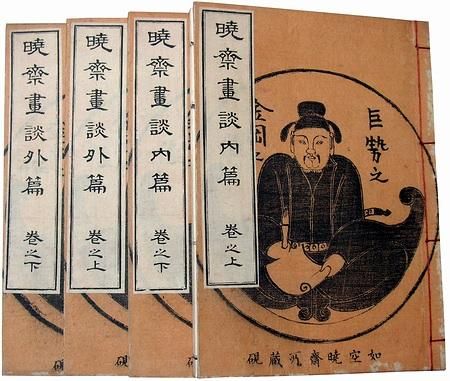 曉齋畫談内篇 卷之上
巨勢之
金岡
如空曉齋所藏硯
曉齋畫談内篇 卷之下
硯
曉齋畫談外篇 卷之上
硯
曉齋畫談外篇 卷之下
硯